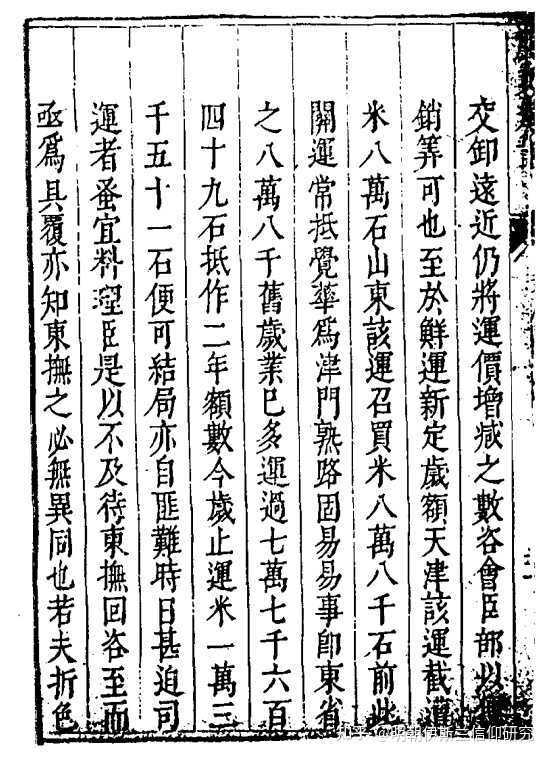 交卸遠近仍將運價增減之數咨會臣部以
銷筭可也至於鮮運新定歲額天津該運截漕
米八萬石山東該運召買米八萬八千石前此
開運常抵覺華爲津門熟路固易易事卽東省
之八萬八千舊歲業已多運過七萬七千六百
四十九石抵作二年額數今歲止運米一萬三
千五十一石便可結局亦自匪難時日甚迫司
運者蚤宜料理臣是以不及待東撫回咨至而
亟爲具覆亦知東撫之必無異同也若夫折色
知乎 @明朝伊斯兰信仰研究